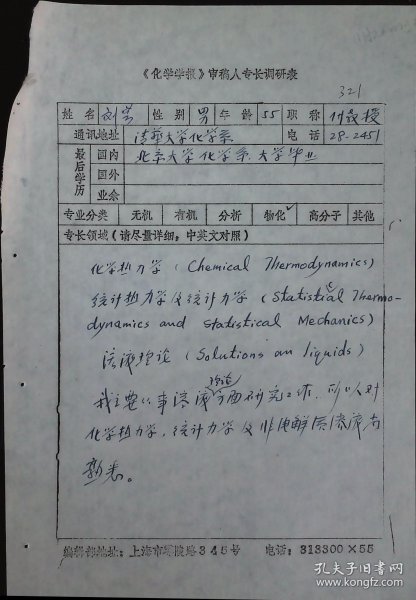 《化学学报》审稿人专长调研表
321
姓名 刘芸 性别 男 年龄 55 职称 付教授
通讯地址 清华大学化学系 电话 28-2451
最后学历 国内 北京大学化学系 大学毕业
国外
业余
专业分类 无机 有机 分析 物化 ✓ 高分子 其他
专长领域(请尽量详细,中英文对照)
化学热力学 (Chemical Thermodynamics)
统计热力学及统计力学 (Statistical Thermo-
dynamics and Statistical Mechanics)
溶液理论 (Solutions an liquids)
理论
我主要从事溶液方面研究工作,所以对
化学热力学,统计力学及非电解质溶液有
熟悉。
编辑部地址:上海市零陵路345号 电话:313300×55
孔夫子旧书网